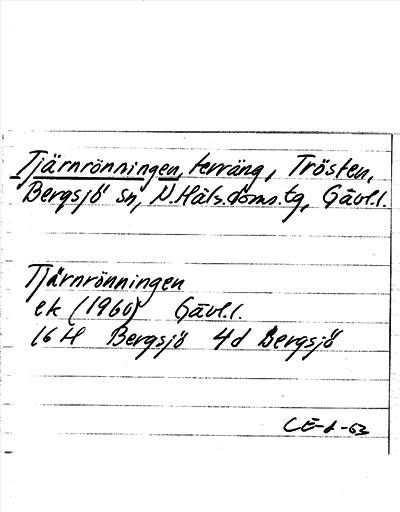 Tjärnrönningen, terräng, Trösten,
Bergsjö sn, N.Häls.doms.tg, Gävl.l.
Tjärnrönningen
ek (1960) Gävl.l.
16H Bergsjö 4d Bergsjö